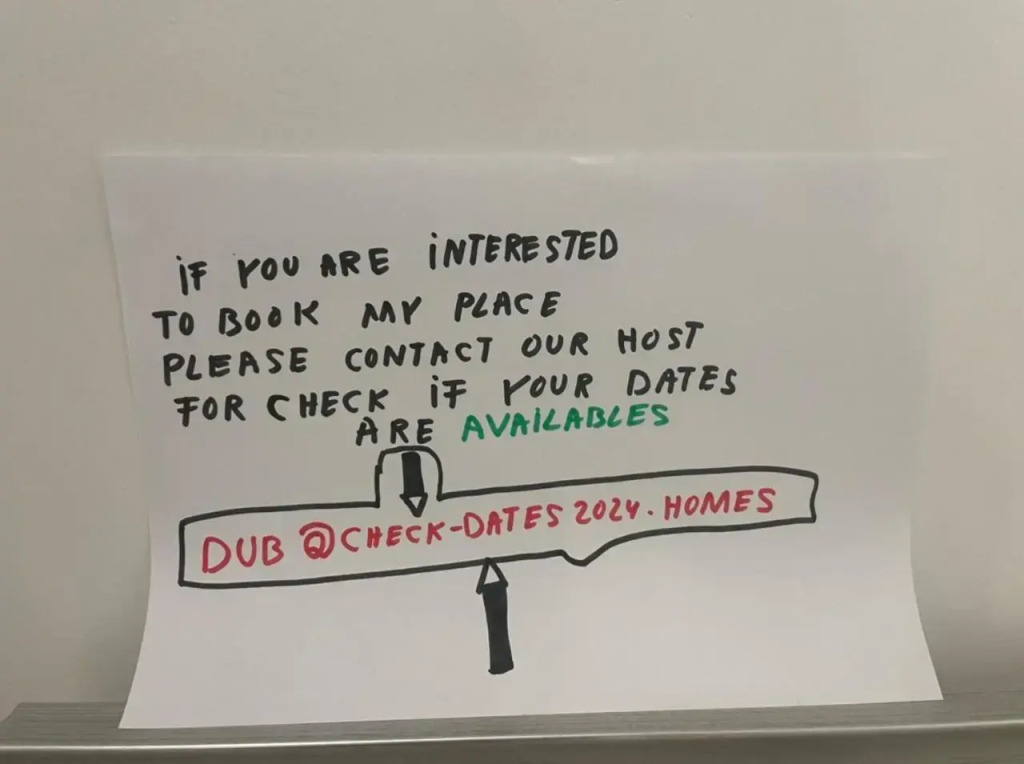 iF YOU ARE iNTERESTED
TO BOOK MY PLACE
PLEASE CONTACT OUR HOST
FOR CHECK iF YOUR DATES
ARE AVAiLABLES
DUB @CHECK-DATES2024.HOMES